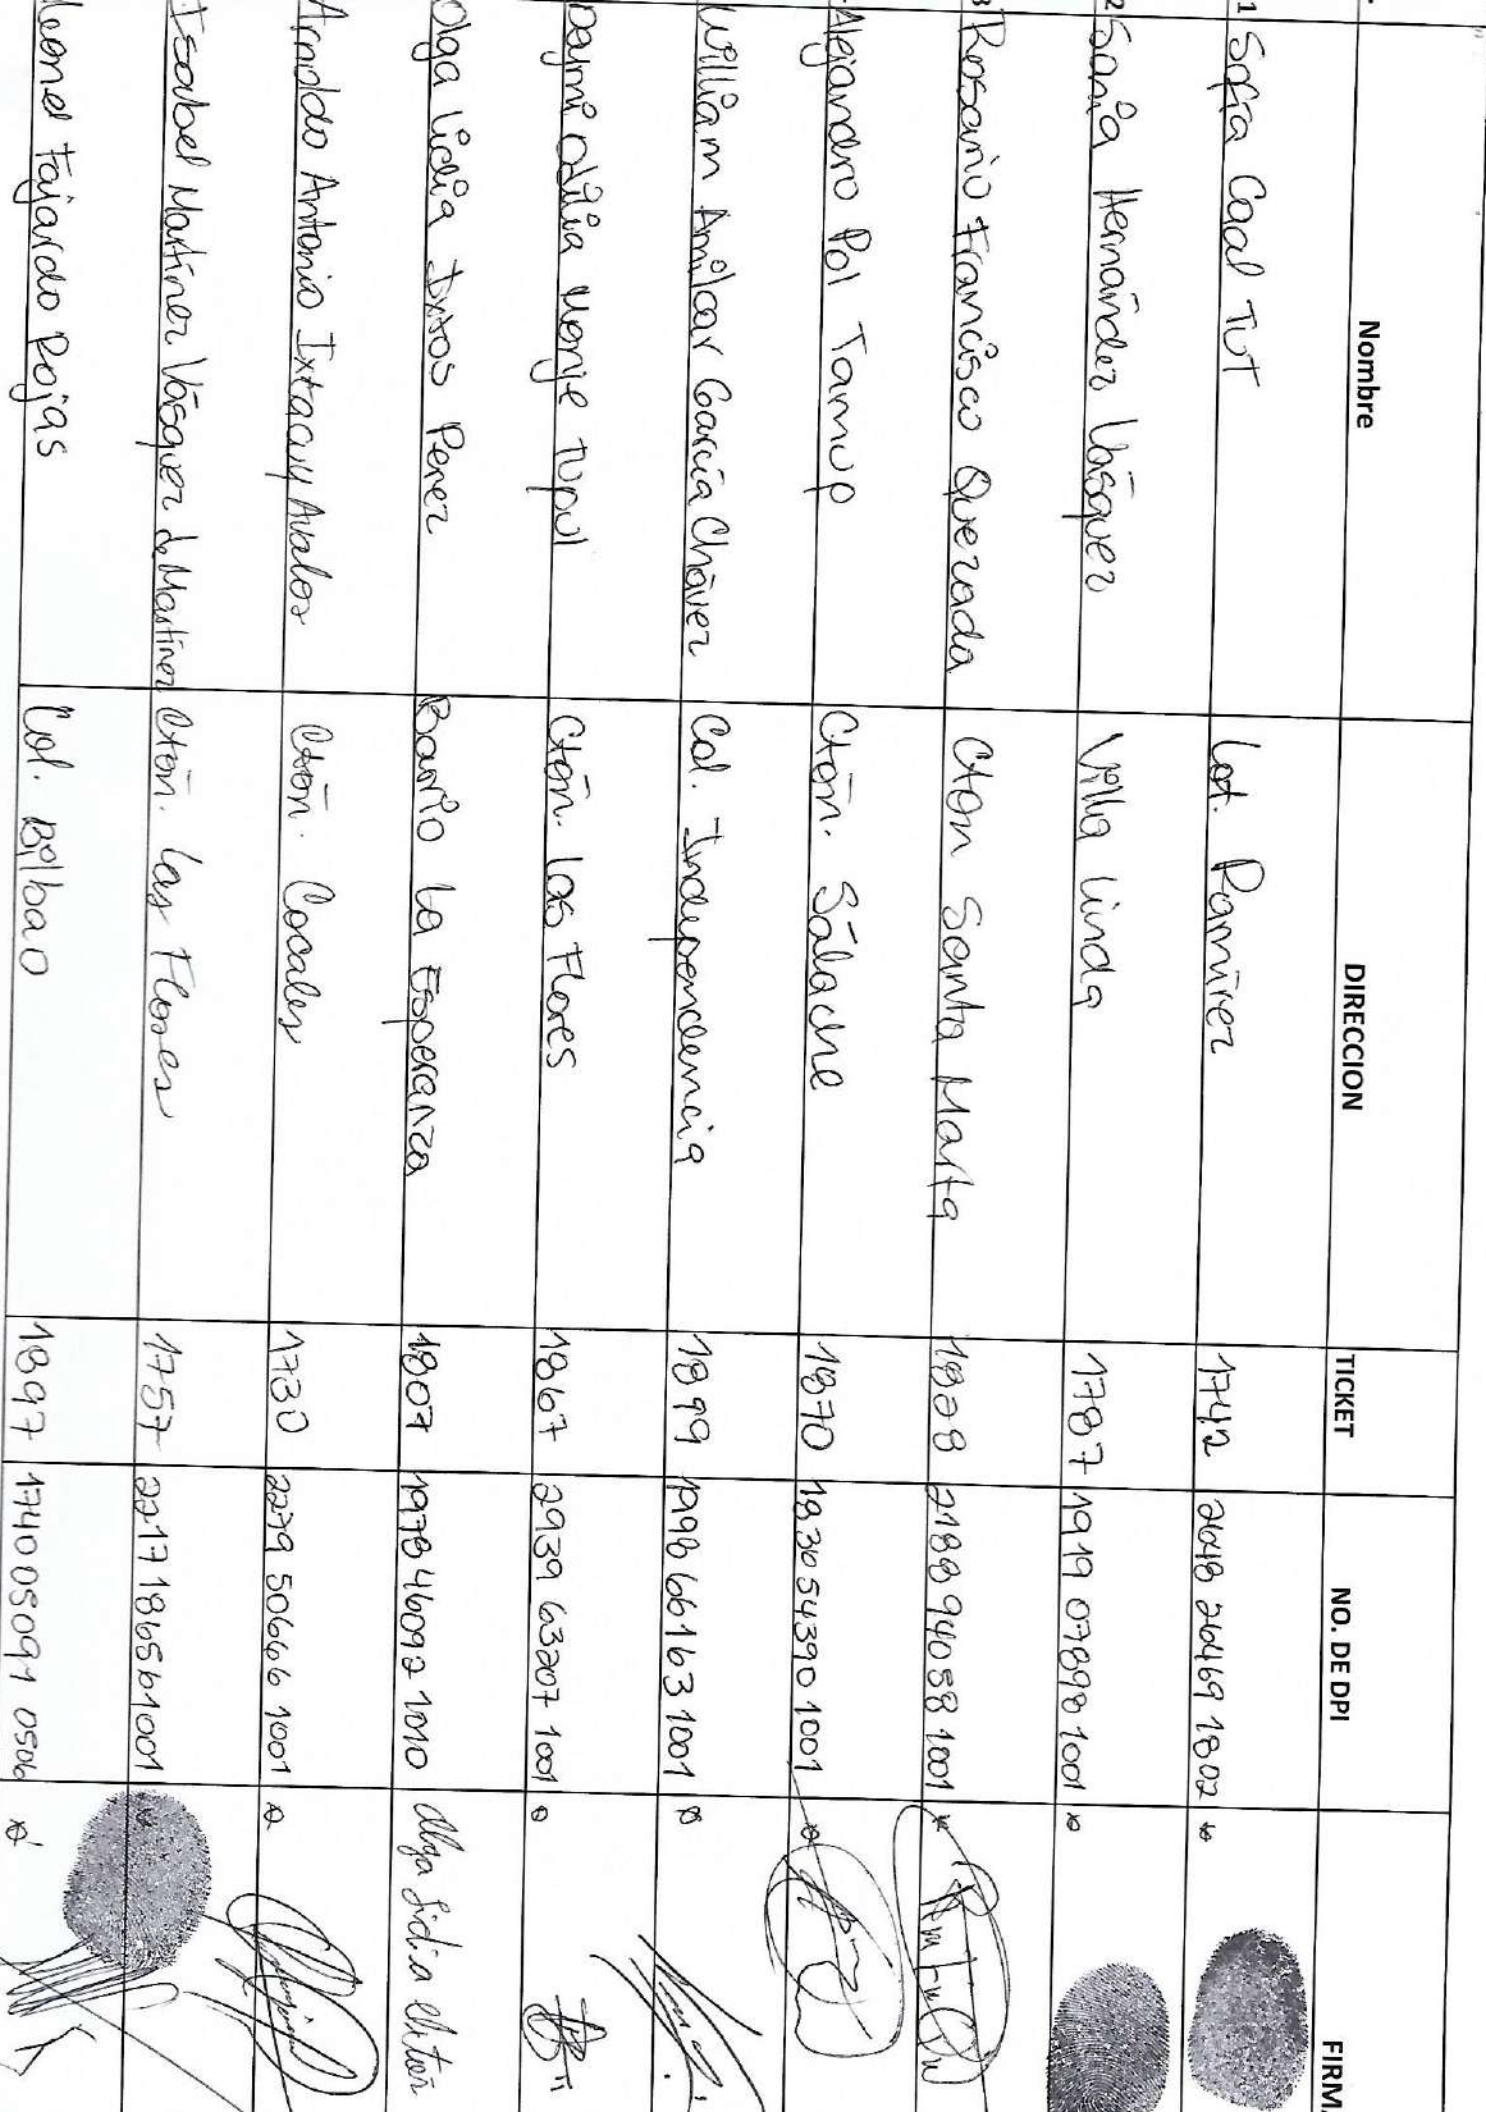 Nombre DIRECCION TICKET NO. DE DPI FIRM
1 Sofía Caal Tut Lot. Ramírez 1742 2648 26469 1802
2 Sania Hernández Vásquez Villa Linda 1787 1919 07898 1001
3 Rosario Francisco Quezada Cton Santa Marta 1828 2188 94058 1001
Alejandro Pol Tamup Ctón. Sálache 1870 1830 54390 1001
William Amilcar García Chávez Col. Independencia 1899 1998 66163 1001
Daymi Odilia Monje Tupul Ctón. Las Flores 1867 2939 63207 1001
Olga Lidia Ixtos Perez Barrio La Esperanza 1807 1978 46092 1010 Olga Lidia
Arnoldo Antonio Ixtacuy Avalos Ctón. Cocales 1730 2279 50666 1001
Isabel Martínez Vásquez de Martínez Ctón. Las Flores 1757 2217 18656 1001
Leonel Fajardo Rojas Col. Bilbao 1897 1740 05091 0506